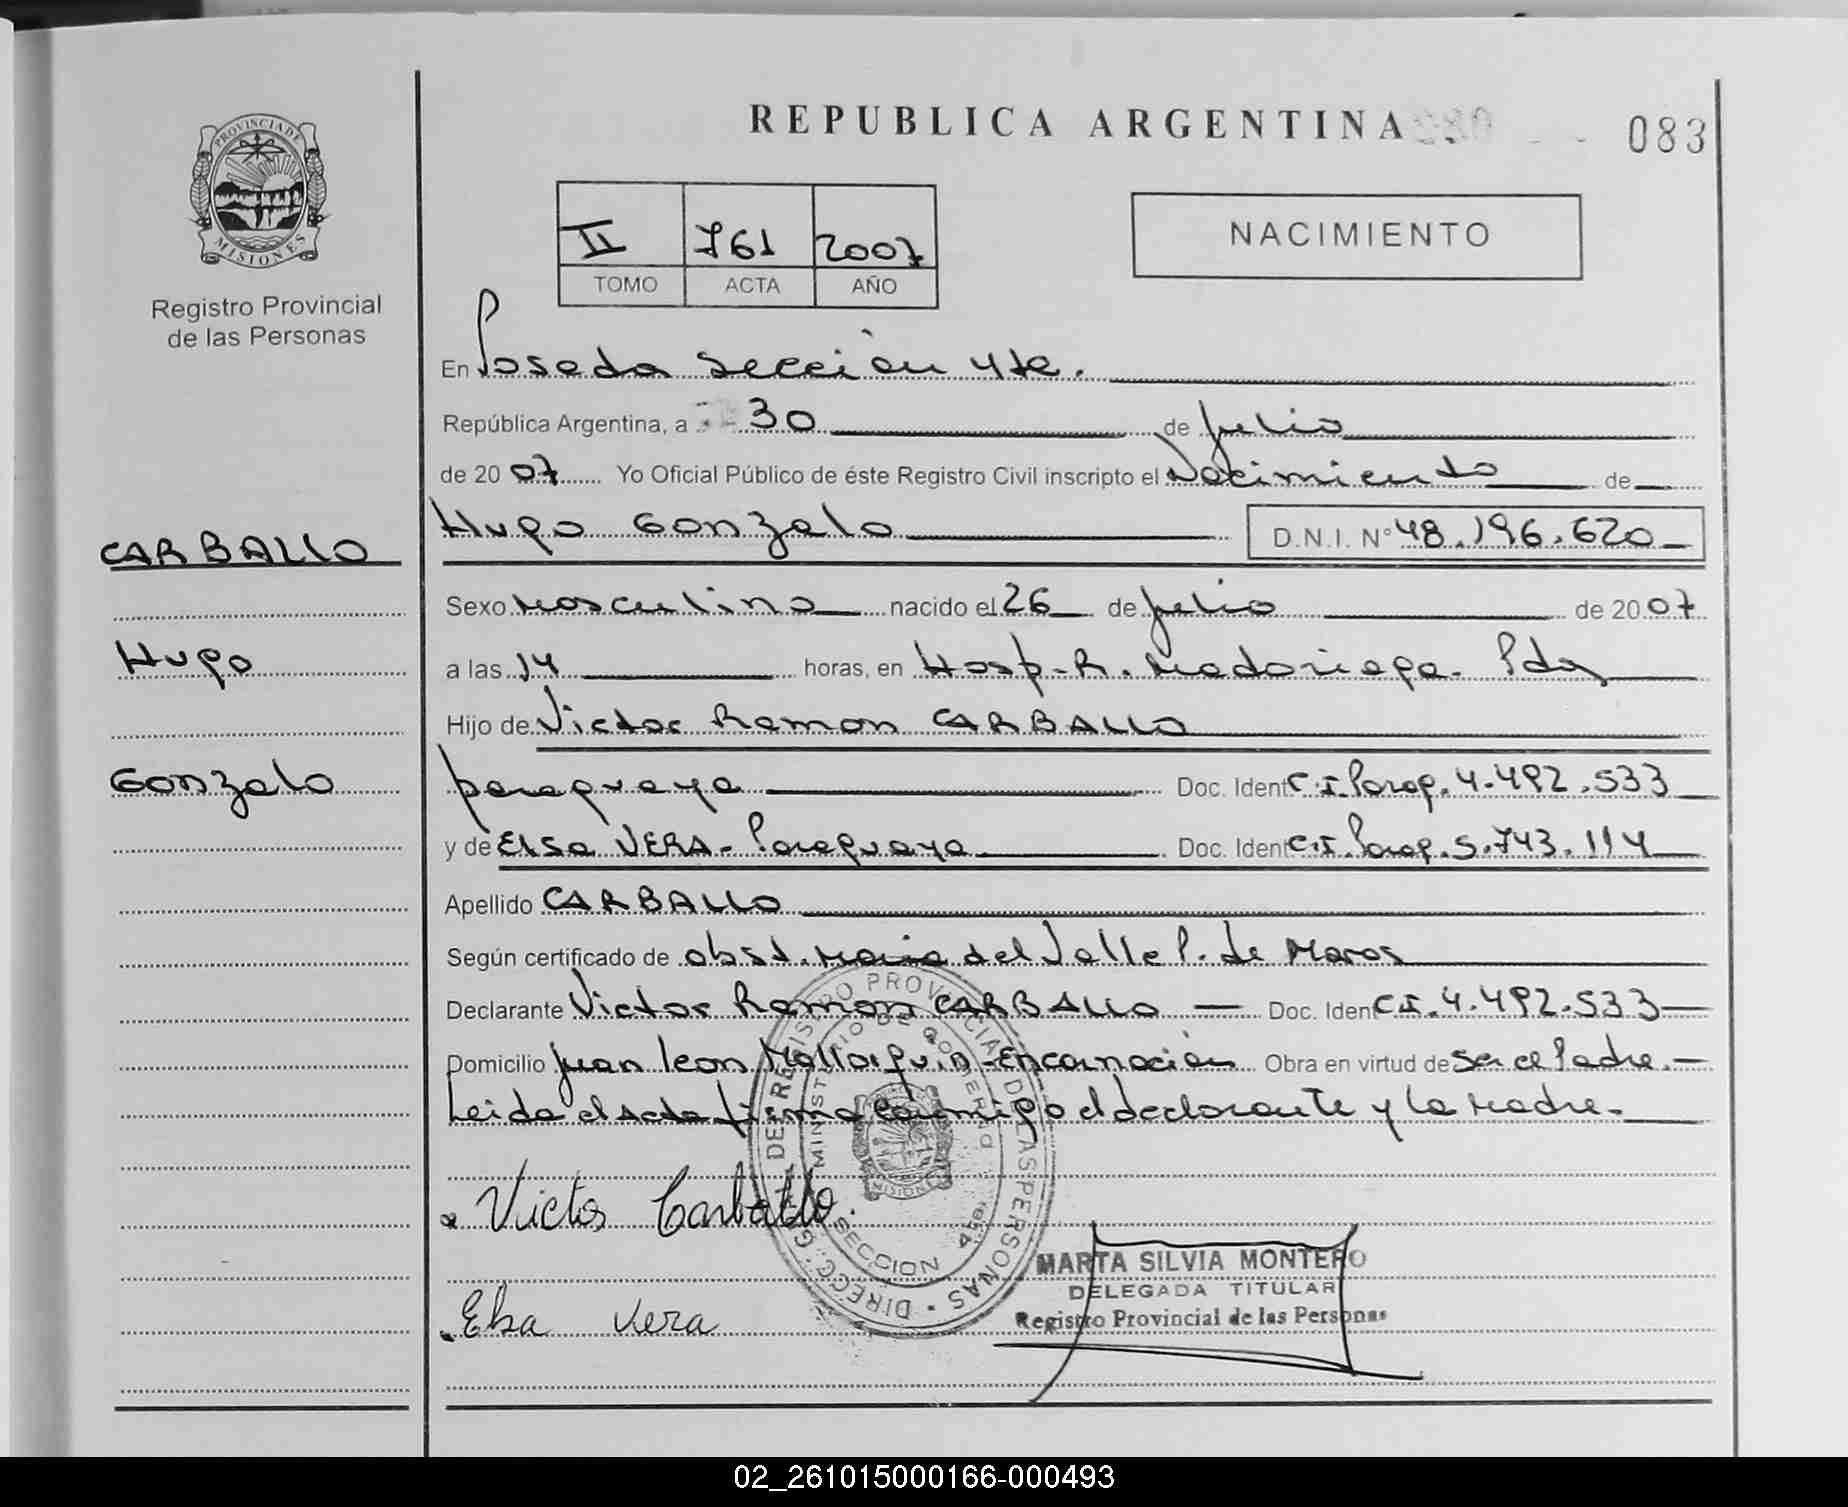 REPUBLICA ARGENTINA
083
PROVINCIA DE
MISIONES
Registro Provincial
de las Personas
II 761 2007
TOMO ACTA AÑO
NACIMIENTO
En Posadas Sección 4ta.
República Argentina, a 30 de Julio
de 20 07 Yo Oficial Público de éste Registro Civil inscripto el Nacimiento de
CARBALLO
Hugo Gonzalo D.N.I. Nº 48.196.620
Sexo Masculino nacido el 26 de Julio de 20 07
Hugo
a las 14 horas, en Hosp. R. Madariaga. Pdas
Hijo de Victor Ramon CARBALLO
Gonzalo
paraguaya Doc. Ident C.I. Parag. 4.492.533
y de Elsa VERA - Paraguaya Doc. Ident C.I. Parag. 5.743.114
Apellido CARBALLO
Según certificado de obst. Maria del Valle P. de
Declarante Victor Ramon CARBALLO — Doc. Iden C.I. 4.492.533 —
Domicilio Juan Leon Mallorquin - Encarnación Obra en virtud de ser el Padre. —
Leida el Acta firma conmigo el declarante y la Madre.
DIRECC. GRAL. DE REGISTRO PROVINCIAL DE LAS PERSONAS
MINISTERIO DE GOBIERNO
MISIONES
SECCION 4ta.
Victor Carballo
MARTA SILVIA MONTERO
DELEGADA TITULAR
Registro Provincial de las Personas
Elsa Vera
02_261015000166-000493